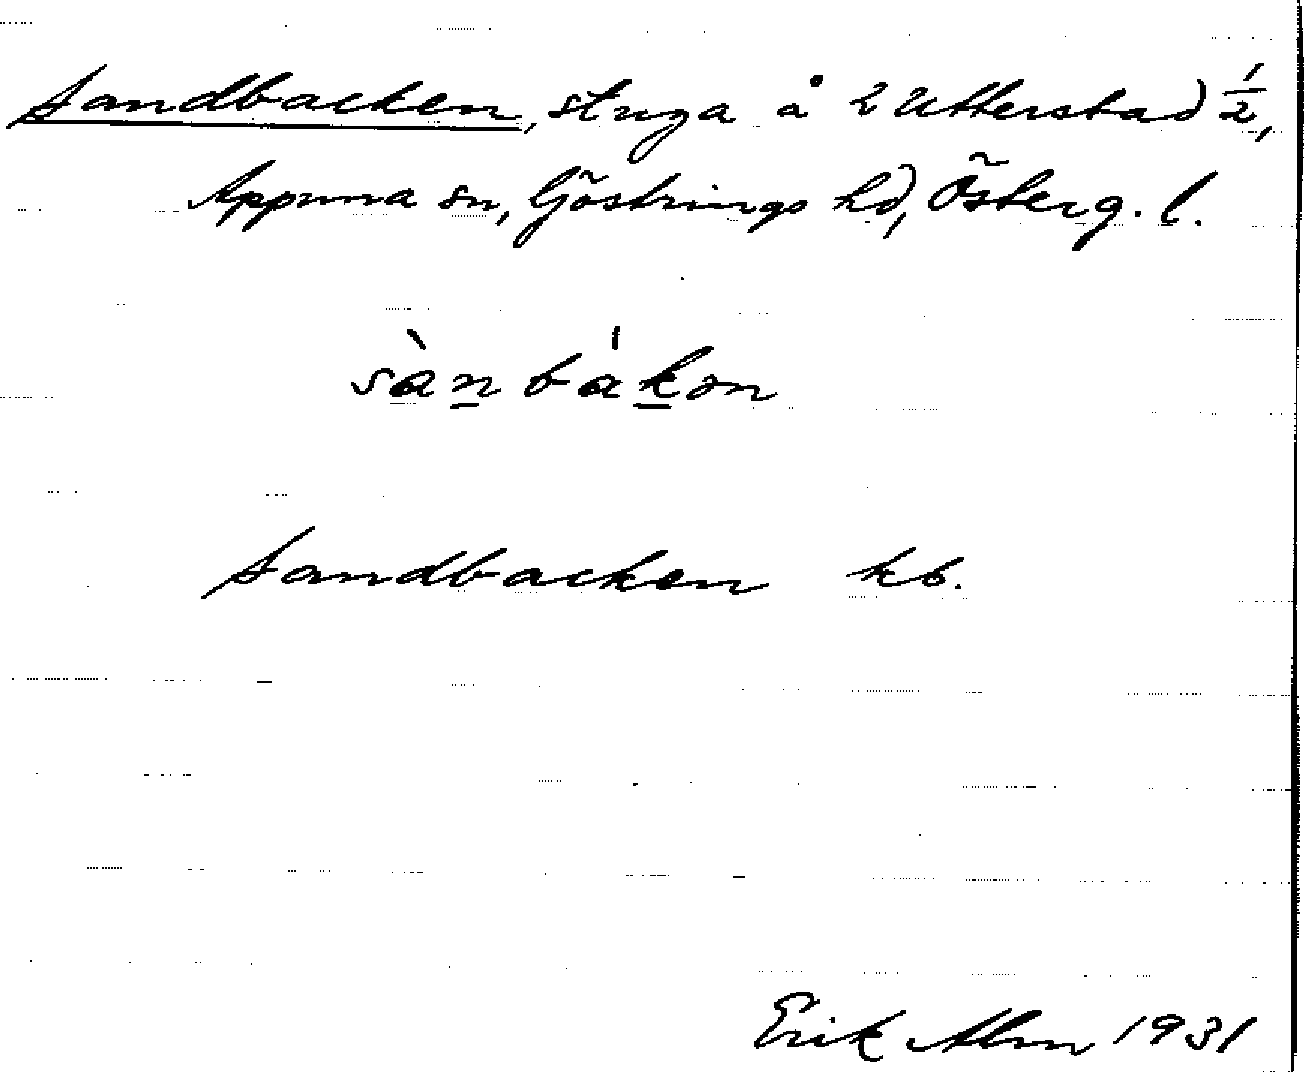 Sandbacken, stuga å 2 Utterstad 1/2,
Appuna sn, Göstrings hd, Österg. l.
sànbákən
Sandbacken kb.
Erik Alm 1931